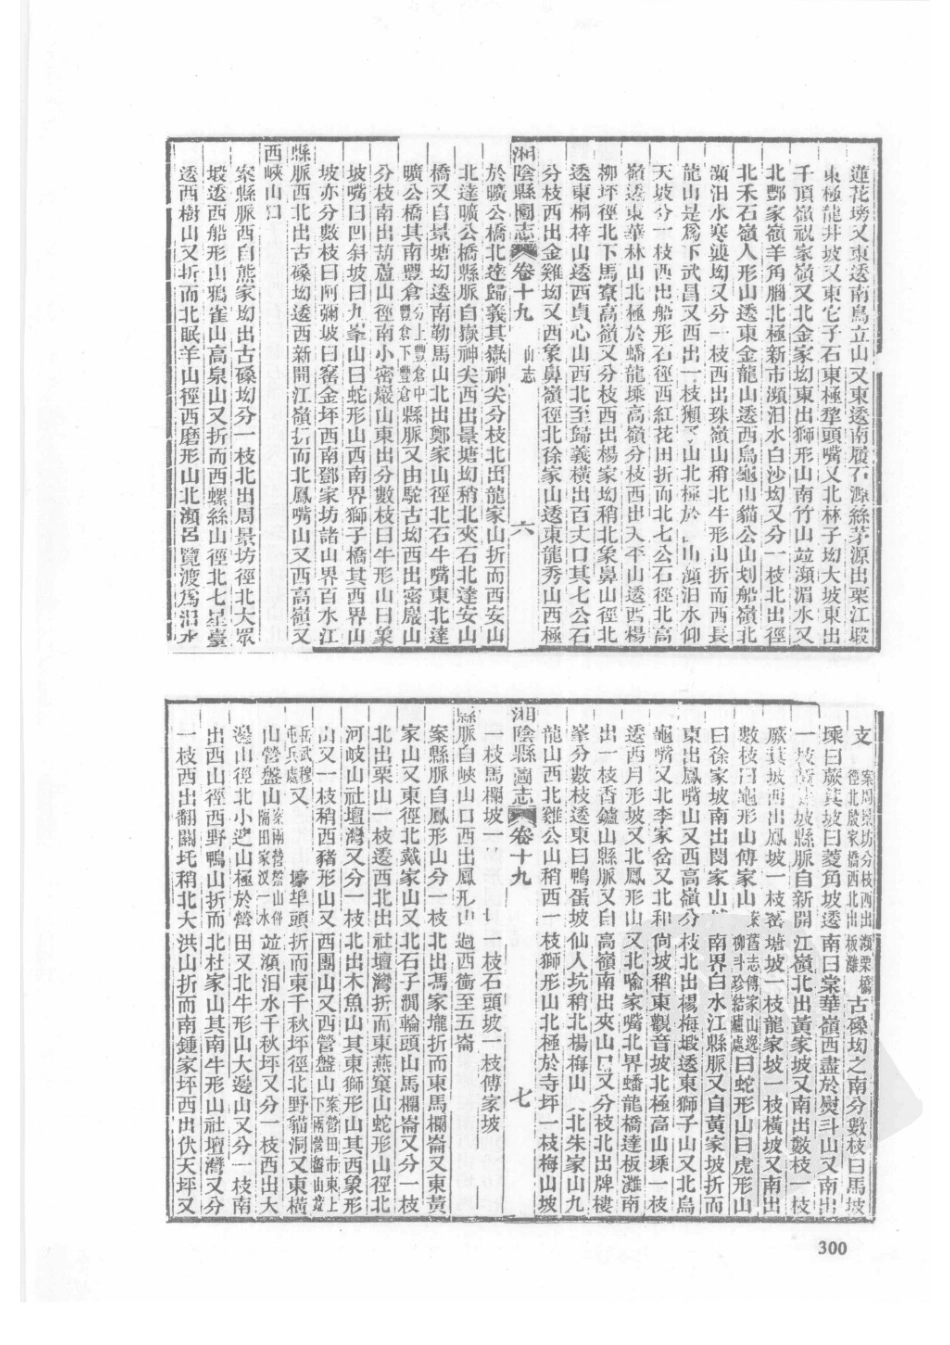 蓮花塝又東逶南鳥立山又東逶南履石源絲茅源出栗江塅
東極龍井坡又東它子石東極犂頭嘴又北林子坳大坡東出
千頂嶺祝家嶺又北金家坳東出獅形山南竹山竝瀕湄水又
北酆家嶺羊角腦北極新市瀕汨水白沙坳又分一枝北出徑
北禾石嶺人形山透東金龍山透西烏龜山貓公山划船嶺北
瀕汨水寒婆坳又分一枝西出珠嶺山稍北牛形山折而西長
龍山是爲下武昌又西出一枝獺子山北極於山瀕汨水仰
天坡分一枝西出船形石徑西紅花田折而北七公石徑北高
嶺逶東華林山北極於蟠龍橤高嶺分枝西出天平山透西楊
柳坪徑北下馬寮高嶺又分枝西出楊家坳稍北象鼻山徑北
逶東桐梓山逶西貞心山西北至歸義橫出百丈口其七公石
分枝西出金雞坳又西象鼻嶺徑北徐家山逶東龍秀山西極
湘陰縣圖志 卷十九 山志 六
於曠公橋北達歸義其嶽神尖分枝北出龍家山折而西安山
北達曠公橋縣脈自嶽神尖西出景塘坳稍北夾石北達安山
橋又自景塘坳逶南勒馬山北出鄭家山徑北石牛嘴東北達
曠公橋其南豐倉分上豐倉中豐倉下豐倉縣脈又由駝古坳西出密巖山
分枝南出葫蘆山徑南小密巖山東出分數枝曰牛形山曰象
坡嘴曰凹斜坡曰九峯山曰蛇形山西南界獅子橋其西界山
坡亦分數枝曰阿彌坡曰窖金坪西南鄧家坊諸山界百水江
縣脈西北出古磉坳逶西新開江嶺折而北鳳嘴山又西高嶺又
西峽山口
案縣脈西自熊家坳出古磉坳分一枝北出周景坊徑北大眾
塅逶西船形山鴉雀山高泉山又折而西螺絲山徑北七星臺
逶西樹山又折而北眠羊山徑西磨形山北瀕呂覽渡爲汨水
支案周景坊分枝西出徑北殷家橋西北出瀕栗橋板灘古磉坳之南分數枝曰馬坡
橤曰蕨萁坡曰菱角坡逶南曰棠華嶺西盡於熨斗山又南出
一枝坡縣脈自新開江嶺北出黃家坡又南出數枝一枝
蕨萁坡西出鳳坡一枝窰塘坡一枝龍家坡一枝橫坡又南出
數枝曰龜形山傅家山案舊志傅家山邊柳斗珍結廬處曰蛇形山曰虎形山
曰徐家坡南出閔家山南界白水江縣脈又自黃家坡折而
東出鳳嘴山又西高嶺分枝北出楊梅塅透東獅子山又北烏
龜嘴又北李家岔又北和尙坡稍東觀音坡北極高山橤一枝
透西月形坡又北鳳形山又北喻家嘴北界蟠龍橋達板灘南
出一枝香鑪山縣脈又自高嶺南出夾山口又分枝北出牌樓
峯分數枝逶東曰鴨蛋坡仙人坑稍北楊梅山北朱家山九
龍山西北雞公山稍西一枝獅形山北極於寺坪一枝梅山坡
湘陰縣圖志 卷十九 七
一枝馬欄坡一一枝石頭坡一枝傅家坡
縣脈自峽山口西出鳳形山迤西衝至五崙
案縣脈自鳳形山分一枝北出馮家壠折而東馬欄崙又東黃
家山又東徑北戴家山又北石子澗輪頭山馬欄崙又分一枝
北出栗山一枝逶西北出社壇灣折而東燕窠山蛇形山徑北
河岐山社壇灣又分一枝北出木魚山其東獅形山其西象形
山又一枝稍西豬形山又西團山又西營盤山案營田市東上下兩營盤山
岳武穆屯兵處又壕埠頭折而東千秋坪徑北野貓洞又東橫
山營盤山案兩營盤山併隔田家汊一水竝瀕汨水千秋坪又分一枝西出大
邊山徑北小邊山極於營田又北牛形山大邊山又分一枝南
出西山徑西野鴨山折而北杜家山其南牛形山社壇灣又分
一枝西出翻圝坵稍北大洪山折而南鍾家坪西出伏天坪又
300